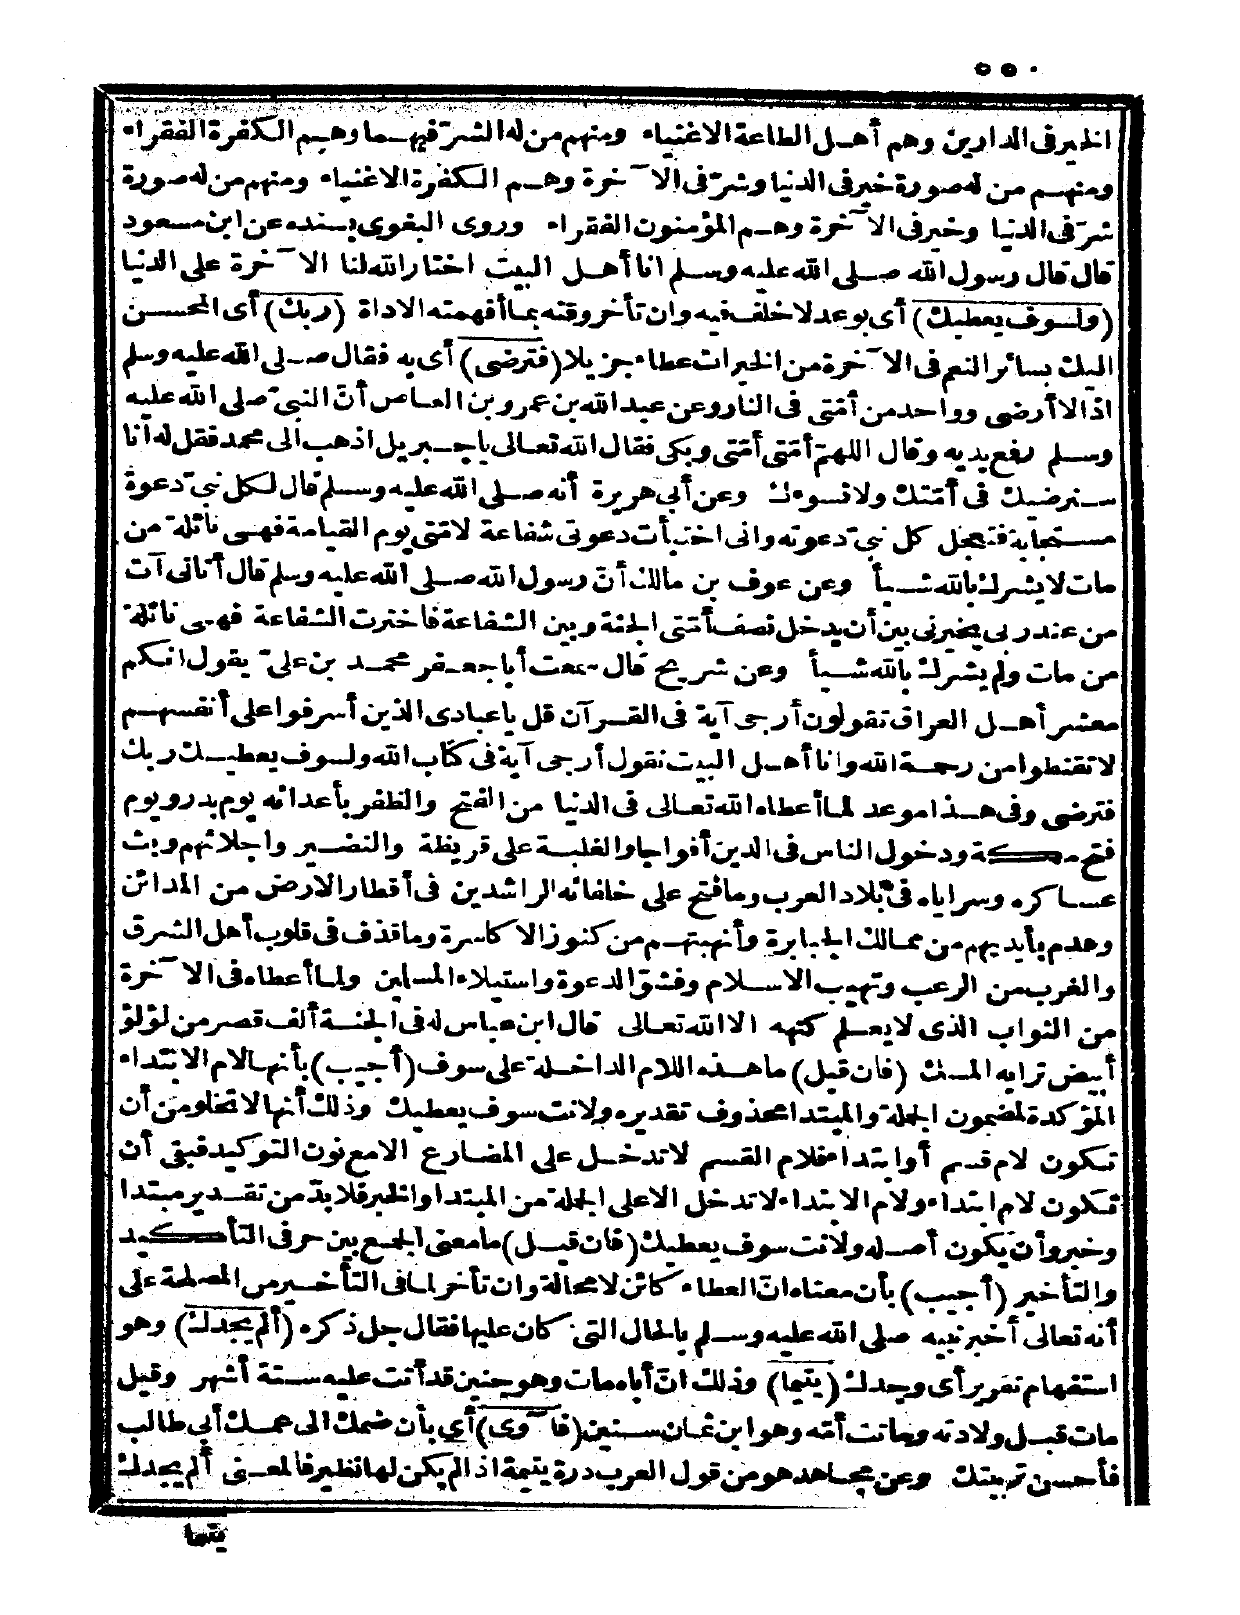 ٥٥٠
الخير فى الدارين وهم أهل الطاعة الاغنياء ومنهم من له الشر فيهما وهم الكفرة الفقراء
ومنهم من له صورة خير فى الدنيا وشر فى الآخرة وهم الكفرة الاغنياء ومنهم من له صورة
شر فى الدنيا وخير فى الآخرة وهم المؤمنون الفقراء وروى البغوى بسنده عن ابن مسعود
قال قال رسول الله صلى الله عليه وسلم انا أهل البيت اختار الله لنا الآخرة على الدنيا
(ولسوف يعطيك) أى بوعد لا خلف فيه وان تأخر وقته بما أفهمته الاداة (ربك) أى المحسن
اليك بسائر النعم فى الآخرة من الخيرات عطاء جزيلا (فترضى) أى به فقال صلى الله عليه وسلم
اذا لا أرضى وواحد من أمتى فى النار وعن عبد الله بن عمرو بن العاص أنّ النبىّ صلى الله عليه
وسلم رفع يديه وقال اللهمّ أمّتى أمّتى وبكى فقال الله تعالى يا جبريل اذهب الى محمد فقل له أنا
سنرضيك فى أمّتك ولا نسوءك وعن أبى هريرة أنه صلى الله عليه وسلم قال لكل نبىّ دعوة
مستجابة فتعجل كل نبىّ دعوته وانى اختبأت دعوتى شفاعة لامّتى يوم القيامة فهى نائلة من
مات لا يشرك بالله شيأ وعن عوف بن مالك أنّ رسول الله صلى الله عليه وسلم قال أتانى آت
من عند ربى يخيرنى بين أن يدخل نصف أمّتى الجنة وبين الشفاعة فاخترت الشفاعة فهى نائلة
من مات ولم يشرك بالله شيأ وعن شريح قال سمعت أبا جعفر محمد بن علىّ يقول انكم
معشر أهل العراق تقولون أرجى آية فى القرآن قل يا عبادى الذين أسرفوا على أنفسهم
لا تقنطوا من رحمة الله وانا أهل البيت نقول أرجى آية فى كتاب الله ولسوف يعطيك ربك
فترضى وفى هذا موعد لما أعطاه الله تعالى فى الدنيا من الفتح والظفر بأعدائه يوم بدر ويوم
فتح مكة ودخول الناس فى الدين أفواجا والغلبة على قريظة والنضير واجلائهم وبث
عساكره وسراياه فى بلاد العرب وما فتح على خلفائه الراشدين فى أقطار الارض من المدائن
وهدم بأيديهم من ممالك الجبابرة وأنهبتهم من كنوز الاكاسرة وما قذف فى قلوب أهل الشرق
والغرب من الرعب وتهيب الاسلام وفشوّ الدعوة واستيلاء المسلمين ولما أعطاه فى الآخرة
من الثواب الذى لا يعلم كنهه الا الله تعالى قال ابن عباس له فى الجنة ألف قصر من لؤلؤ
أبيض ترابه المسك (فان قيل) ما هذه اللام الداخلة على سوف (أجيب) بأنها لام الابتداء
المؤكدة لمضمون الجملة والمبتدا محذوف تقديره ولانت سوف يعطيك وذلك أنها لا تخلو من أن
تكون لام قسم أو ابتداء فلام القسم لا تدخل على المضارع الامع نون التوكيد فبقى أن
تكون لام ابتداء ولام الابتداء لا تدخل الاعلى الجملة من المبتدا والخبر فلا بدّ من تقدير مبتدا
وخبر وأن يكون أصله ولانت سوف يعطيك (فان قيل) ما معنى الجمع بين حرفى التأكيد
والتأخير (أجيب) بأن معناه انّ العطاء كائن لا محالة وان تأخر لما فى التأخير من المصلحة على
أنه تعالى أخبر نبيه صلى الله عليه وسلم بالحال التى كان عليها فقال جل ذكره (ألم يجدك) وهو
استفهام تقرير أى وجدك (يتيما) وذلك انّ أباه مات وهو جنين قد أتت عليه ستة أشهر وقيل
مات قبل ولادته وماتت أمّه وهو ابن ثمان سنين (فآوى) أى بأن ضمك الى عمك أبى طالب
فأحسن تربيتك وعن مجاهد هو من قول العرب درة يتيمة اذا لم يكن لها نظير فالمعنى ألم يجدك
يتيما